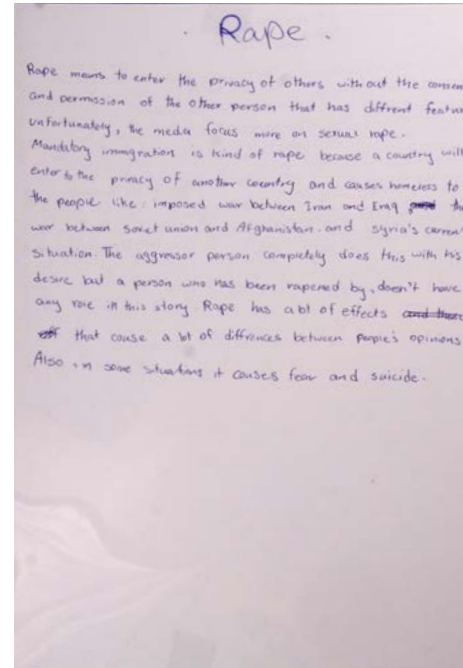 . Rape .
Rape means to enter the privacy of others without the consen
and permission of the other person that has diffrent featur
unfortunately, the media focus more on sexual rape.
Mandatory immgration is kind of rape because a country will
enter to the privacy of another country and causes homeless to
the people like: imposed war between Iran and Iraq, the
war between soviet union and Afghanistan. and syria's curren
situation. The aggressor person completely does this with his
desire but a person who has been rapened by, doesn't have
any role in this story. Rape has a lot of effects and there
eff that cause a lot of diffrences between people's opinions
Also in some situations it causes fear and suicide.